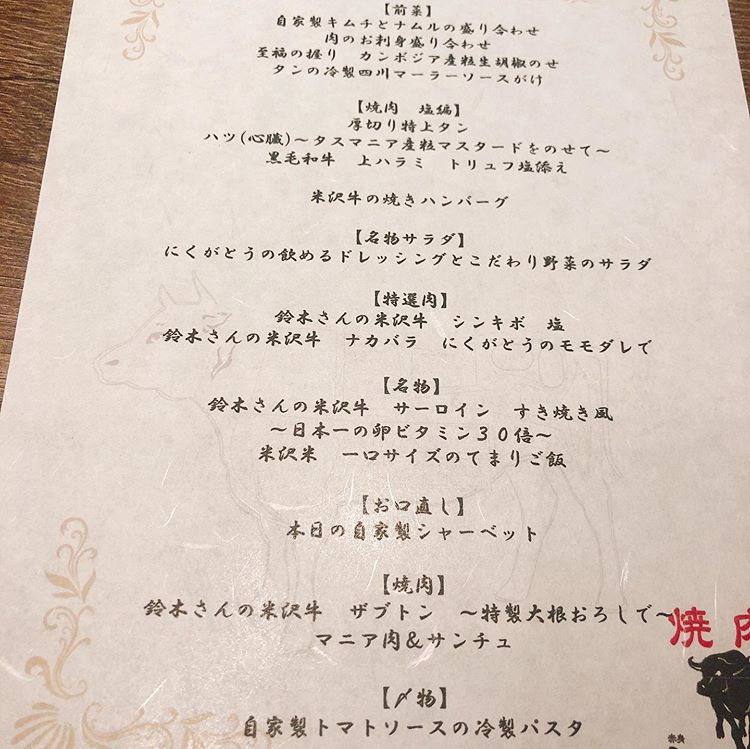 【前菜】
自家製キムチとナムルの盛り合わせ
肉のお刺身盛り合わせ
至福の握り　カンボジア産粒生胡椒のせ
タンの冷製四川マーラーソースがけ
【焼肉　塩編】
厚切り特上タン
ハツ(心臓)～タスマニア産粒マスタードをのせて～
黒毛和牛　上ハラミ　トリュフ塩添え
米沢牛の焼きハンバーグ
【名物サラダ】
にくがとうの飲めるドレッシングとこだわり野菜のサラダ
【特選肉】
鈴木さんの米沢牛　シンキボ　塩
鈴木さんの米沢牛　ナカバラ　にくがとうのモモダレで
【名物】
鈴木さんの米沢牛　サーロイン　すき焼き風
～日本一の卵ビタミン３０倍～
米沢米　一口サイズのてまりご飯
【お口直し】
本日の自家製シャーベット
【焼肉】
鈴木さんの米沢牛　ザブトン　～特製大根おろしで～
マニア肉＆サンチュ
【〆物】
自家製トマトソースの冷製パスタ
焼肉
赤身